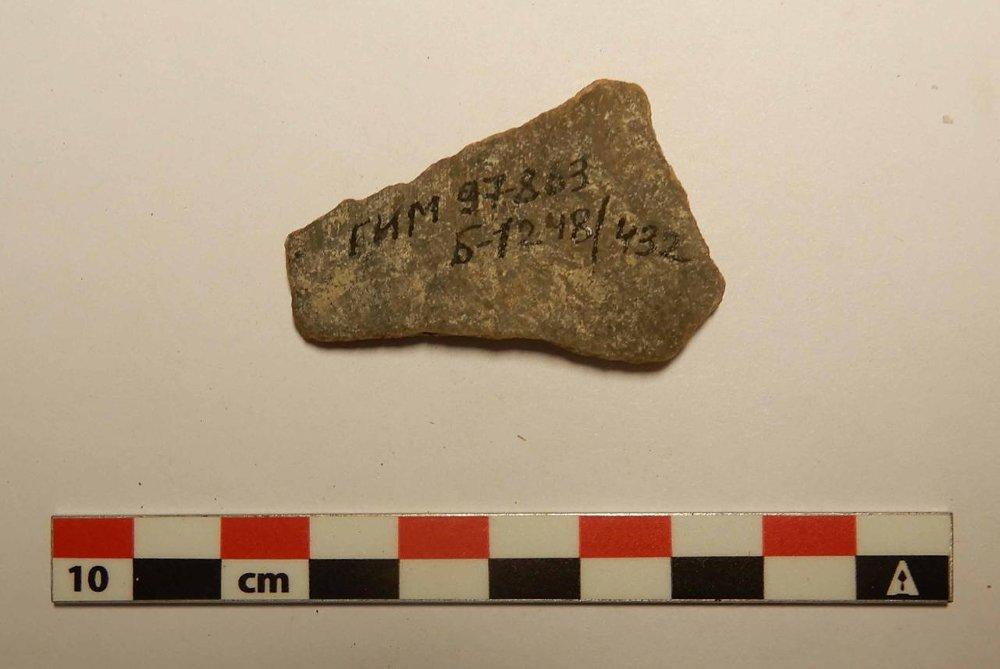 ГИМ 97863
Б-1248/432
10 cm